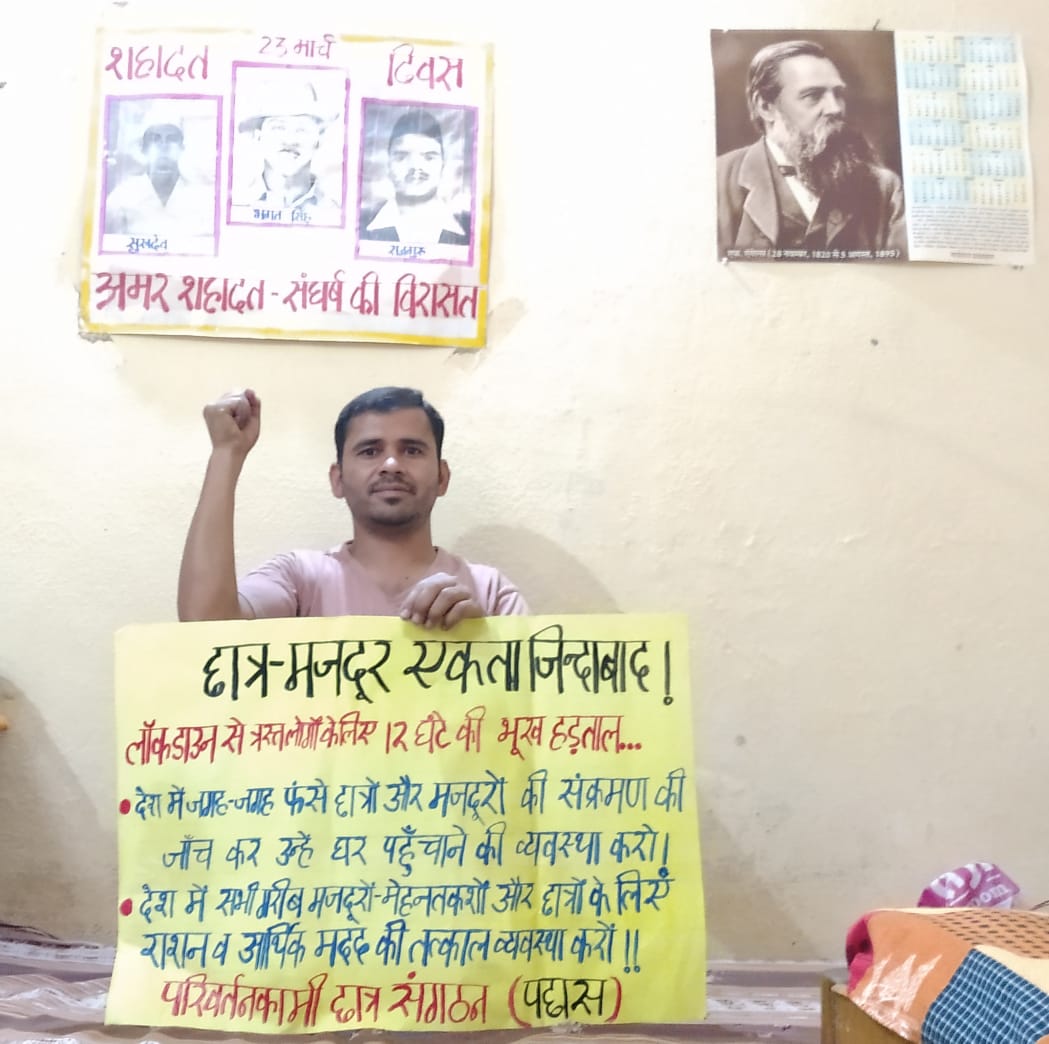 23 मार्च
शहादत दिवस
भगत सिंह
सुखदेव राजगुरु
अमर शहादत - संघर्ष की विरासत
एफ. एंगेल्स (28 नवम्बर, 1820 से 5 अगस्त, 1895)
छात्र-मजदूर एकता जिन्दाबाद!
लॉकडाउन से त्रस्त लोगों के लिए 12 घंटे की भूख हड़ताल...
• देश में जगह-जगह फंसे छात्रों और मजदूरों की संक्रमण की
जाँच कर उन्हें घर पहुँचाने की व्यवस्था करो।
• देश में सभी गरीब मजदूरों-मेहनतकशों और छात्रों के लिएं
राशन व आर्थिक मदद की तत्काल व्यवस्था करों !!
परिवर्तनकामी छात्र संगठन (पछास)